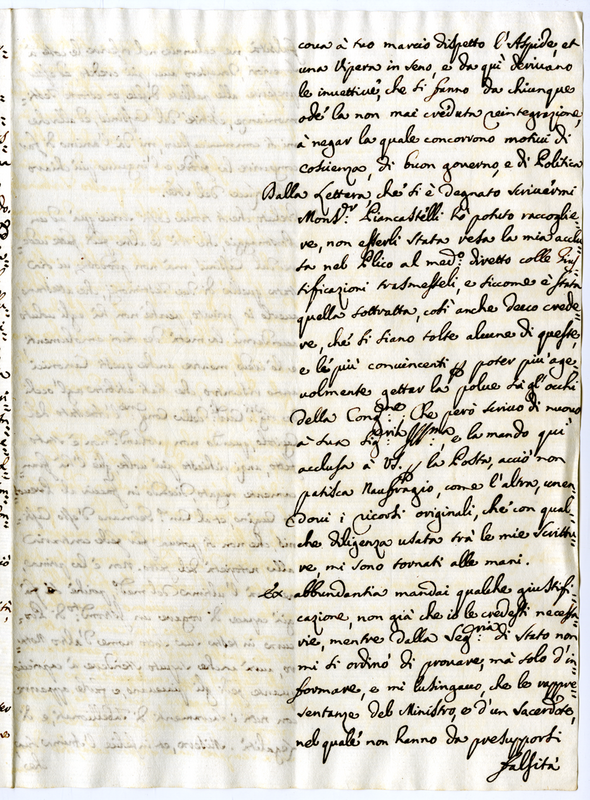 coua à tuo marcio dispetto l'Aspide, et
una Vipera in seno, e da qui deriuano
le inuettiue, che si fanno da chiunque
ode la non mai creduta reintegrazione,
à negar la quale concorrono motiui di
coscienza, di buon gouerno, e di Politica
Dalla Lettera che si è degnato scriuermi
Mons.r Piancastelli hò potuto raccoglie=
re, non esserli stata resa la mia acclu=
sa nel Plico al med.o diretto colle Giu=
tificazioni trasmesseli, e siccome è stata
quella sottratta, così anche deuo crede=
re, che si siano tolte alcune di queste
e le più conuincenti p poter più age=
uolmente gettar la polue sù gl'occhi
della Cong.ne Che però scriuo di nuouo
à Sua Sig.ria Ill.ma e la mando qui
acclusa à VS. p la Posta, acciò non
patisca Naufragio, come l'altra, unen=
doui i ricorsi originali, che con qual=
che diligenza usata trà le mie Scrittu=
re, mi sono tornati alle mani.
Ex abbundantia mandai qualche giustifi=
cazione, non già che io le credessi necessa=
rie, mentre dalla Seg.ria di Stato non
mi si ordinò di prouare, mà solo d'in=
formare, e mi lusingauo, che le rappre=
sentanze del Ministro, e d'un Sacerdote,
nel quale non hanno da presupporsi
falsità